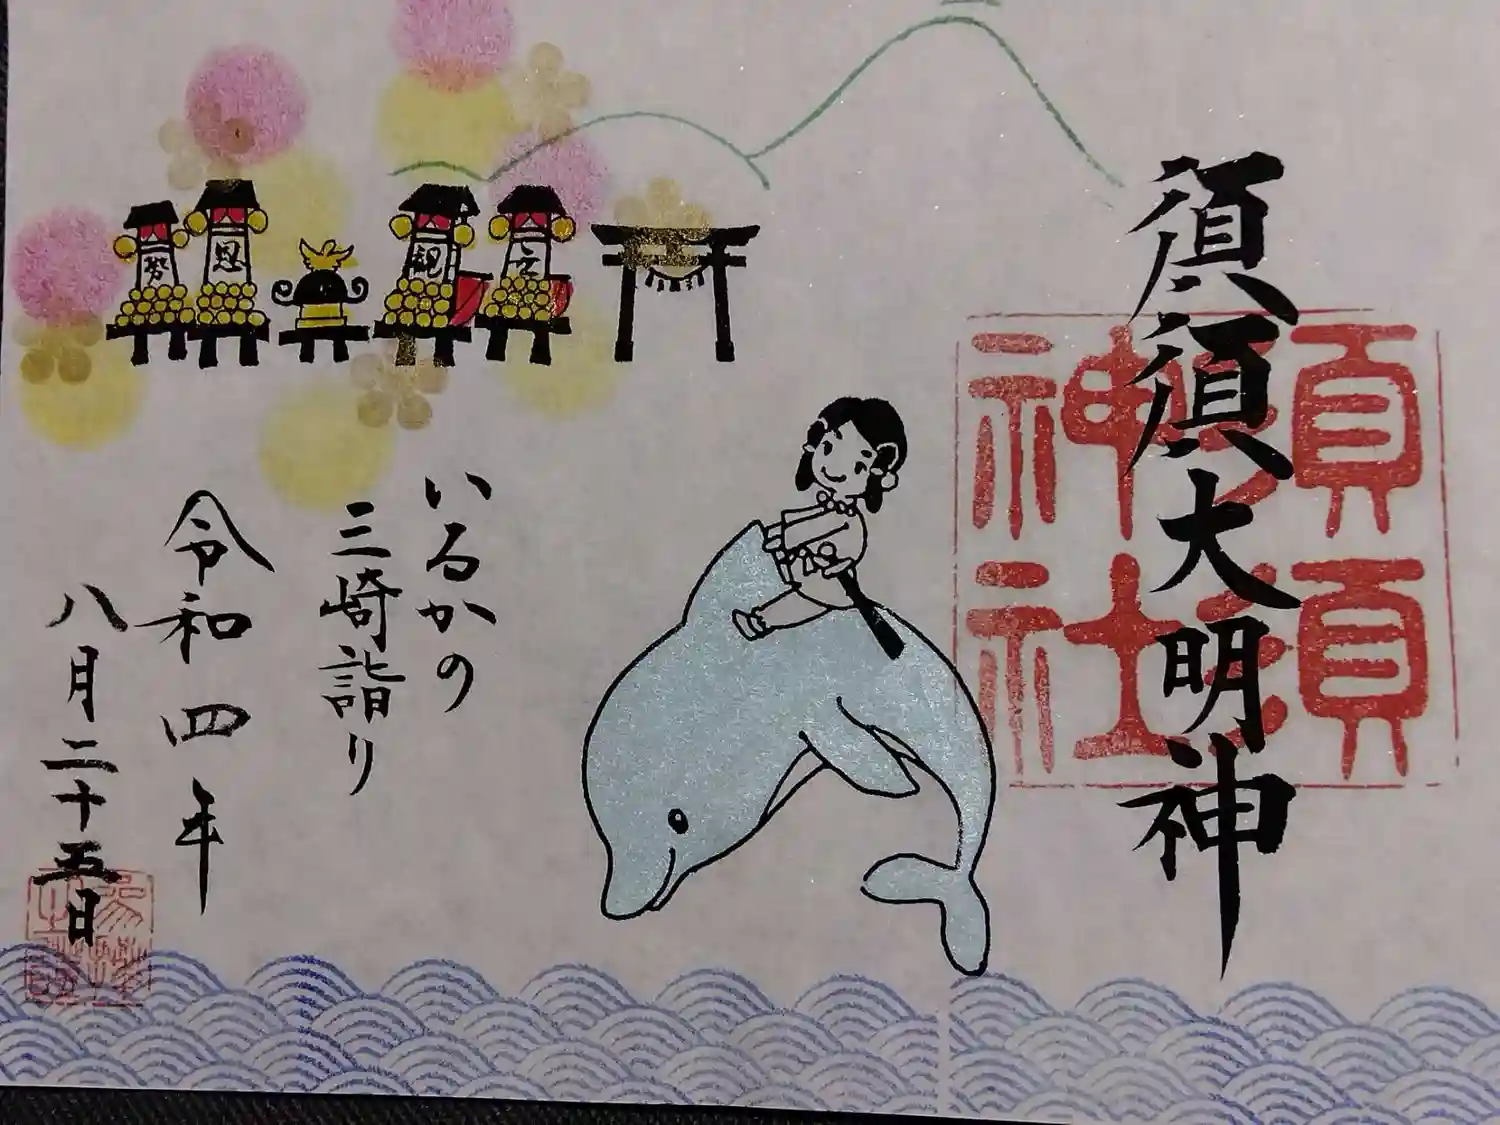 須須大明神
須須
神社
いるかの
三崎詣り
令和四年
八月二十五日
恩